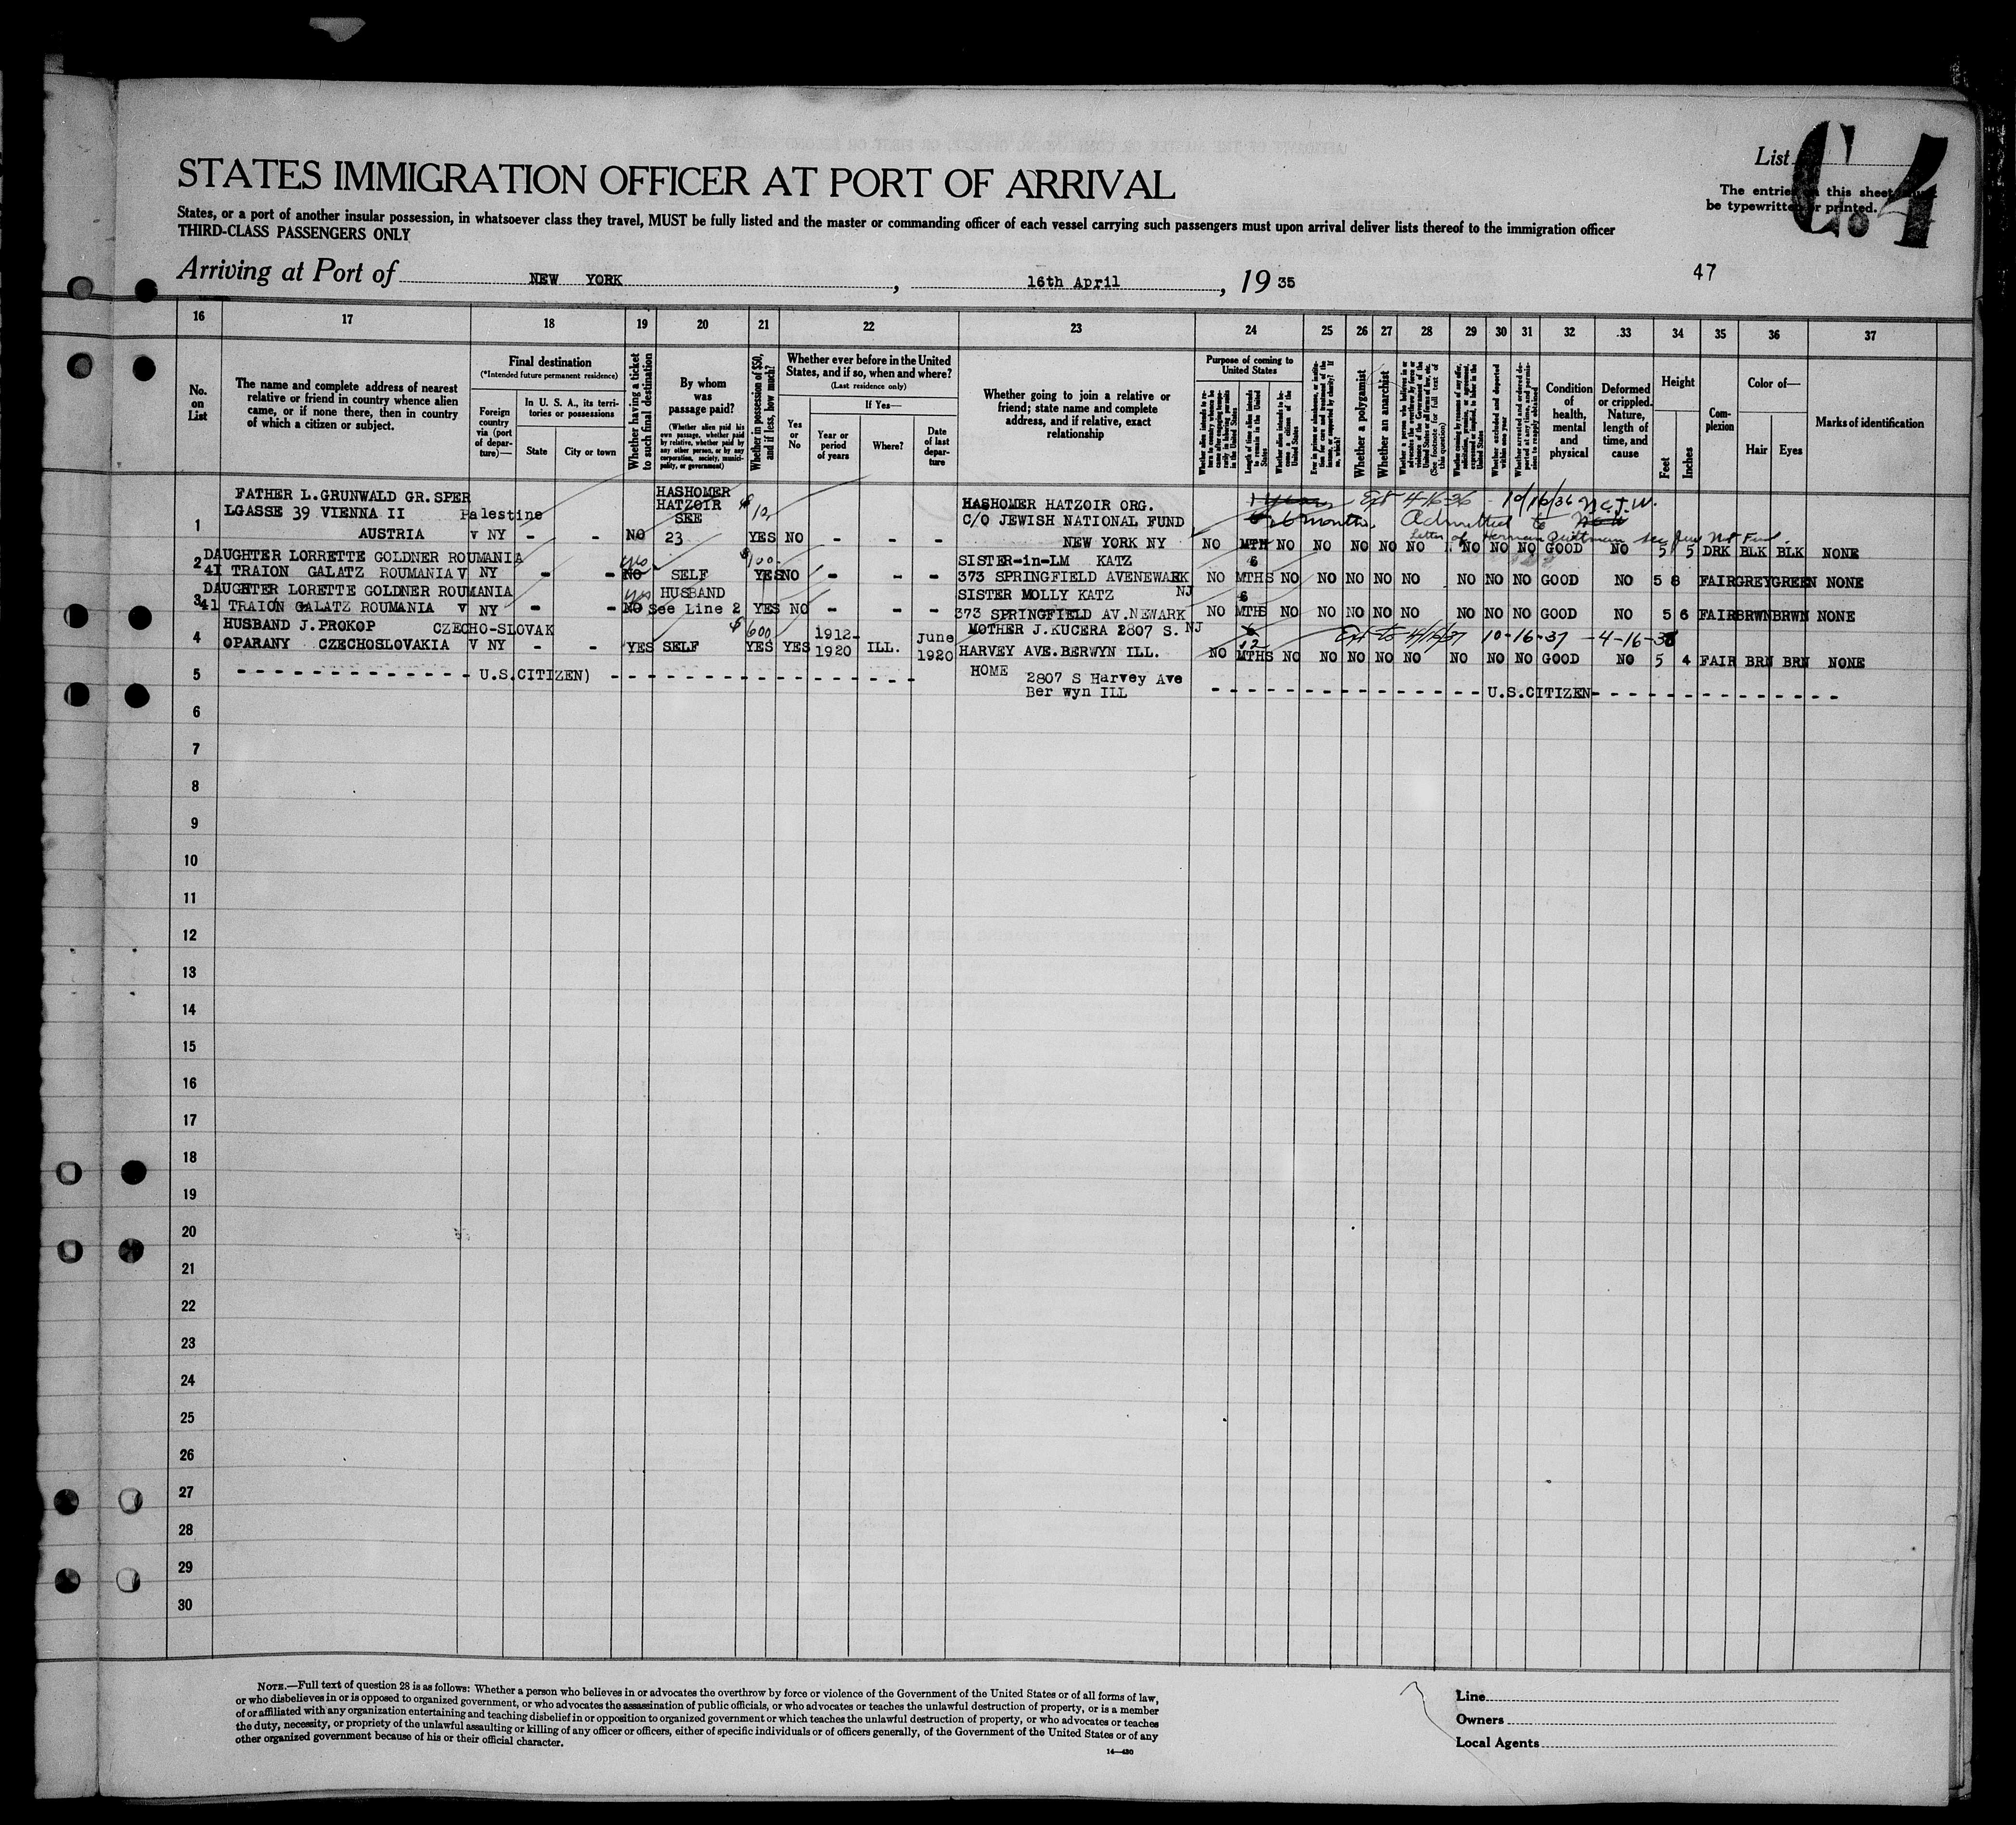 List
C.4
The entries on this sheet must
be typewritten or printed.
STATES IMMIGRATION OFFICER AT PORT OF ARRIVAL
States, or a port of another insular possession, in whatsoever class they travel, MUST be fully listed and the master or commanding officer of each vessel carrying such passengers must upon arrival deliver lists thereof to the immigration officer
THIRD-CLASS PASSENGERS ONLY
Arriving at Port of NEW YORK, 16th April, 19 35
47
16 17 18 19 20 21 22 23 24 25 26 27 28 29 30 31 32 33 34 35 36 37
No.
on
List
The name and complete address of nearest
relative or friend in country whence alien
came, or if none there, then in country
of which a citizen or subject.
Final destination
(*Intended future permanent residence)
Foreign
country
via (port
of depar-
ture)—
In U. S. A., its terri-
tories or possessions
State
City or town
Whether having a ticket
to such final destination
By whom
was
passage paid?
(Whether alien paid his
own passage, whether paid
by relative, whether paid by
any other person, or by any
corporation, society, munici-
pality, or government)
Whether in possession of $50,
and if less, how much?
Whether ever before in the United
States, and if so, when and where?
(Last residence only)
Yes
or
No
If Yes—
Year or
period
of years
Where?
Date
of last
depar-
ture
Whether going to join a relative or
friend; state name and complete
address, and if relative, exact
relationship
Purpose of coming to
United States
Whether a polygamist
Whether an anarchist
Condition
of
health,
mental
and
physical
Deformed
or crippled.
Nature,
length of
time, and
cause
Height
Feet
Inches
Com-
plexion
Color of—
Hair
Eyes
Marks of identification
FATHER L.GRUNWALD GR.SPER HASHOMER
LGASSE 39 VIENNA II Palestine HATZOIR $ 10, HASHOMER HATZOIR ORG. 1 year Ext 4-16-36 10/16/36 N.C.J.W.
SEE C/O JEWISH NATIONAL FUND 6 months. Admitted to
Letter of Herman Quittman
1 AUSTRIA V NY - - NO 23 YES NO - - - NEW YORK NY NO MTH NO NO NO NO NO NO NO NO GOOD NO 5 5 DRK BLK BLK NONE
DAUGHTER LORRETTE GOLDNER ROUMANIA yes $100. SISTER-in-LM KATZ 6
2 41 TRAION GALATZ ROUMANIA V NY - - NO SELF YES NO - - - 373 SPRINGFIELD AVENEWARK NO MTHS NO NO NO NO NO NO NO NO GOOD NO 5 8 FAIR GREY GREEN NONE
DAUGHTER LORETTE GOLDNER ROUMANIA yes HUSBAND SISTER MOLLY KATZ NJ 6
3 41 TRAION GALATZ ROUMANIA V NY - - NO See Line 2 YES NO - - - 373 SPRINGFIELD AV.NEWARK NO MTHS NO NO NO NO NO NO NO NO GOOD NO 5 6 FAIR BRWN BRWN NONE
HUSBAND J.PROKOP CZECHO-SLOVAK $600 1912- June MOTHER J.KUCERA 2807 S. NJ 6 Ext to 4/16/37 10-16-37 -4-16-38
4 OPARANY CZECHOSLOVAKIA V NY - - YES SELF YES YES 1920 ILL. 1920 HARVEY AVE.BERWYN ILL. NO 12 MTHS NO NO NO NO NO NO NO NO GOOD NO 5 4 FAIR BRN BRN NONE
5 - - - U.S.CITIZEN) - - - HOME 2807 S Harvey Ave
Ber wyn ILL - - - U.S.CITIZEN - - -
6
7
8
9
10
11
12
13
14
15
16
17
18
19
20
21
22
23
24
25
26
27
28
29
30
NOTE.—Full text of question 28 is as follows: Whether a person who believes in or advocates the overthrow by force or violence of the Government of the United States or of all forms of law,
or who disbelieves in or is opposed to organized government, or who advocates the assassination of public officials, or who advocates or teaches the unlawful destruction of property, or is a member
of or affiliated with any organization entertaining and teaching disbelief in or opposition to organized government or which teaches the unlawful destruction of property, or who advocates or teaches
the duty, necessity, or propriety of the unlawful assaulting or killing of any officer or officers, either of specific individuals or of officers generally, of the Government of the United States or of any
other organized government because of his or their official character.
14—430
Line
Owners
Local Agents